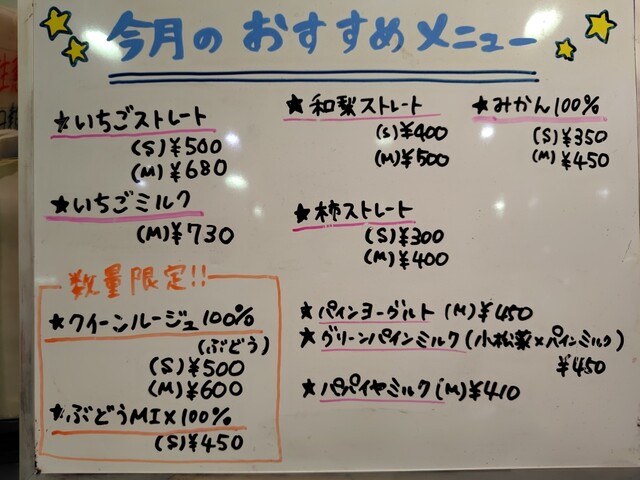 今月のおすすめメニュー
★いちごストレート
(S)¥500
(M)¥680
★いちごミルク
(M)¥730
数量限定!!
★クイーンルージュ100%
(ぶどう)
(S)¥500
(M)¥600
★ぶどうMIX100%
(S)¥450
★和梨ストレート
(S)¥400
(M)¥500
★柿ストレート
(S)¥300
(M)¥400
★みかん100%
(S)¥350
(M)¥450
★パインヨーグルト(M)¥450
★グリーンパインミルク(小松菜×パインミルク)
¥450
★パパイヤミルク(M)¥410